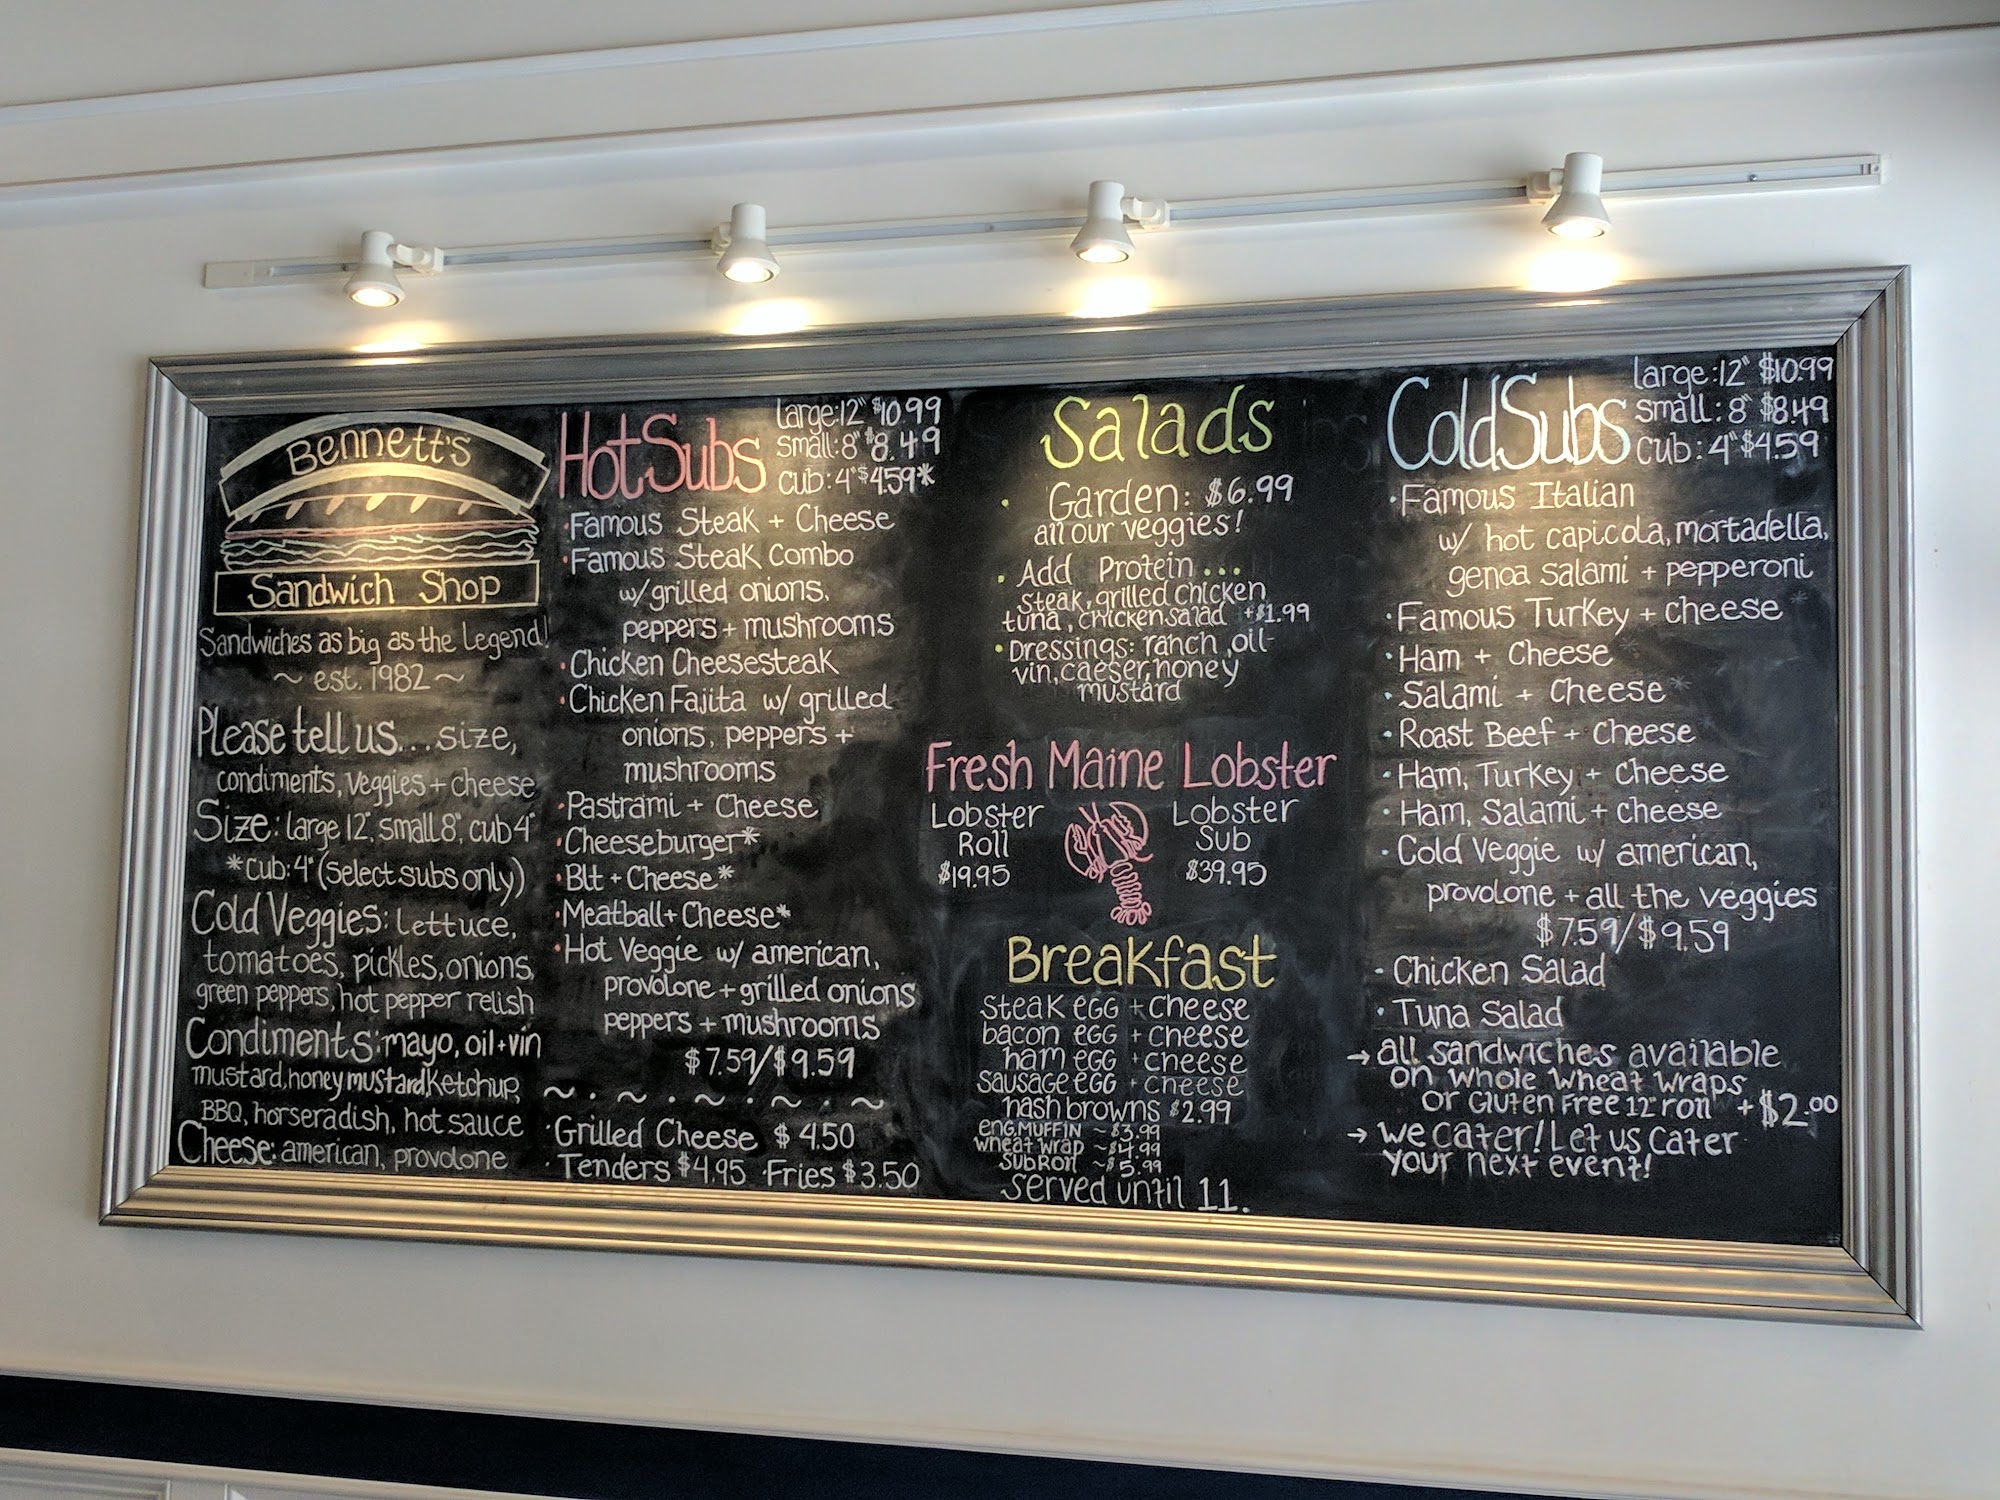 Bennett's
Sandwich Shop
Sandwiches as big as the Legend!
~ est. 1982 ~
Please tell us...size,
condiments, veggies + cheese
Size: large 12", small 8", cub 4"
*cub: 4" (select subs only)
Cold Veggies: lettuce,
tomatoes, pickles, onions,
green peppers, hot pepper relish
Condiments: mayo, oil+vin
mustard, honey mustard, ketchup,
BBQ, horseradish, hot sauce
Cheese: american, provolone
Hot Subs
large: 12" $10.99
small: 8" $8.49
cub: 4" $4.59*
·Famous Steak + Cheese
·Famous Steak Combo
w/ grilled onions,
peppers + mushrooms
·Chicken Cheesesteak
·Chicken Fajita w/ grilled
onions, peppers +
mushrooms
·Pastrami + Cheese
·Cheeseburger*
·Blt + Cheese*
·Meatball + Cheese*
·Hot Veggie w/ american,
provolone + grilled onions
peppers + mushrooms
$7.59/$9.59
~ . ~ . ~ . ~ . ~
·Grilled Cheese $4.50
·Tenders $4.95 ·Fries $3.50
Salads
· Garden: $6.99
all our veggies!
· Add Protein...
steak, grilled chicken
tuna, chicken salad +$1.99
· Dressings: ranch, oil-
vin, caeser, honey
mustard
Fresh Maine Lobster
Lobster
Roll
$19.95
Lobster
Sub
$39.95
Breakfast
steak egg + cheese
bacon egg + cheese
ham egg + cheese
sausage egg + cheese
hash browns $2.99
eng. muffin ~ $3.99
wheat wrap ~ $4.99
sub roll ~ $5.99
served until 11.
Cold Subs
large: 12" $10.99
small: 8" $8.49
cub: 4" $4.59
·Famous Italian
w/ hot capicola, mortadella,
genoa salami + pepperoni
·Famous Turkey + cheese*
·Ham + Cheese*
·Salami + Cheese*
·Roast Beef + Cheese
·Ham, Turkey + Cheese
·Ham, Salami + Cheese
·Cold Veggie w/ american,
provolone + all the veggies
$7.59/$9.59
· Chicken Salad
· Tuna Salad
→ all sandwiches available
on whole wheat wraps
or Gluten Free 12" roll +$2.00
→ we cater! Let us cater
your next event!